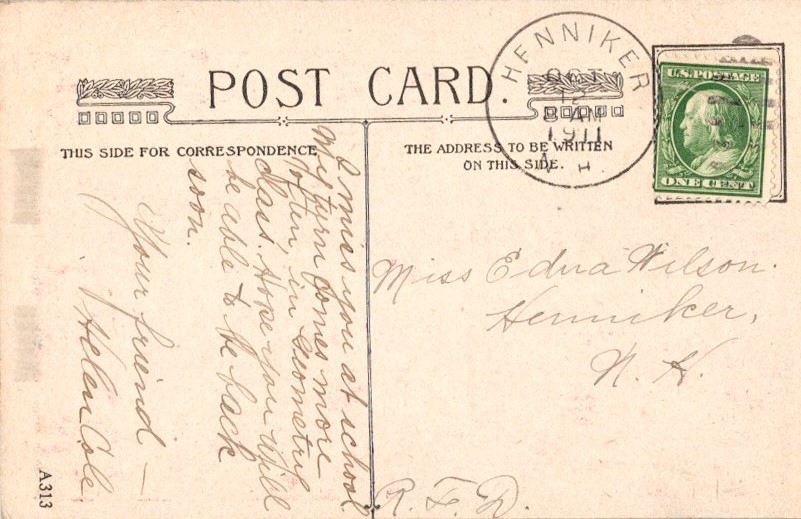 POST CARD.
THIS SIDE FOR CORRESPONDENCE
THE ADDRESS TO BE WRITTEN
ON THIS SIDE.
HENNIKER
OCT
12
8 AM
1911
N. H.
U.S. POSTAGE
ONE CENT
I miss you at school
My turn comes more
often, in Geometry
class. Hope you will
be able to be back
soon.
Your friend —
Helen Cole
Miss Edna Wilson.
Henniker,
N. H.
R. F. D.
A313